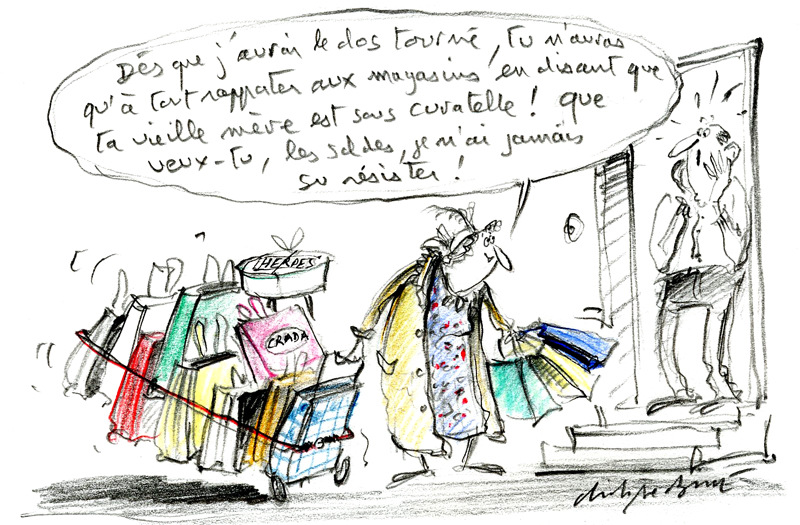 Dès que j'aurai le dos tourné, tu n'auras
qu'à tout rapporter aux magasins en disant que
ta vieille mère est sous curatelle ! Que
veux-tu, les soldes, je n'ai jamais
su résister !
HERPES
CRADA